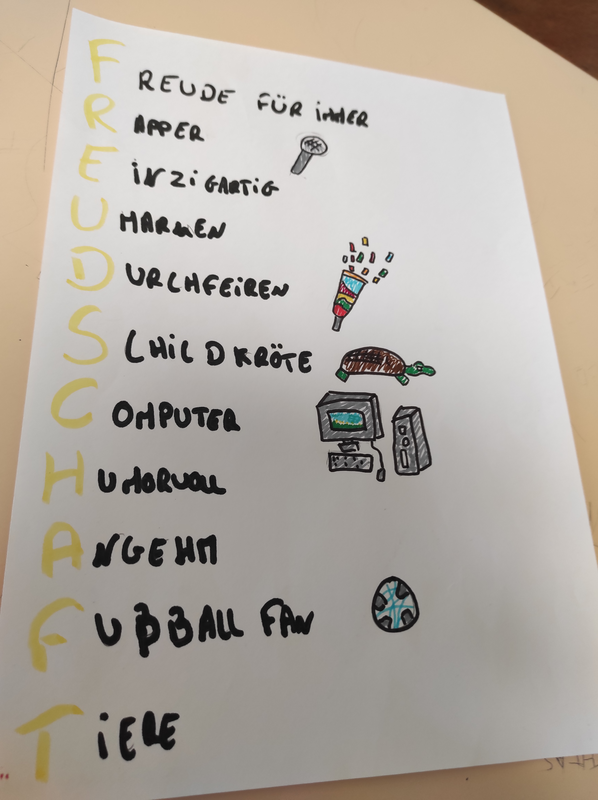 FREUDE FÜR iMMER
RAPPER
EiNZiGARTiG
UMARMEN
DURCHFEiREN
SCHiLDKRÖTE
COMPUTER
HUMORVOLL
ANGEHM
FUßBALL FAN
TiERE